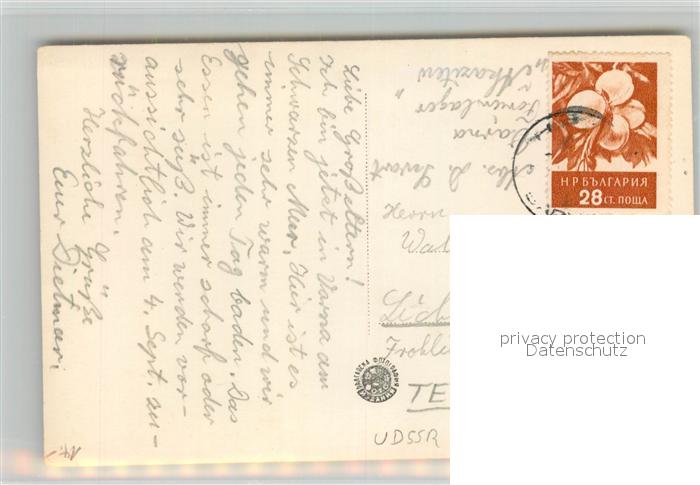 Liebe Großeltern!
Ich bin jetzt in Varna am
Schwarzen Meer. Hier ist es
immer sehr warm und wir
gehen jeden Tag baden. Das
Essen ist immer scharf oder
sehr süß. Wir werden vor-
aussichtlich am 4. Sept. zu-
rückfahren.
Herzliche Grüße
Euer Dietmar.
Abs. D.
Varna
Ferienlager
Herrn
НР БЪЛГАРИЯ
28 СТ. ПОЩА
БЪЛГАРСКА ФОТОГРАФИЯ
TE
UDSSR
privacy protection
Datenschutz